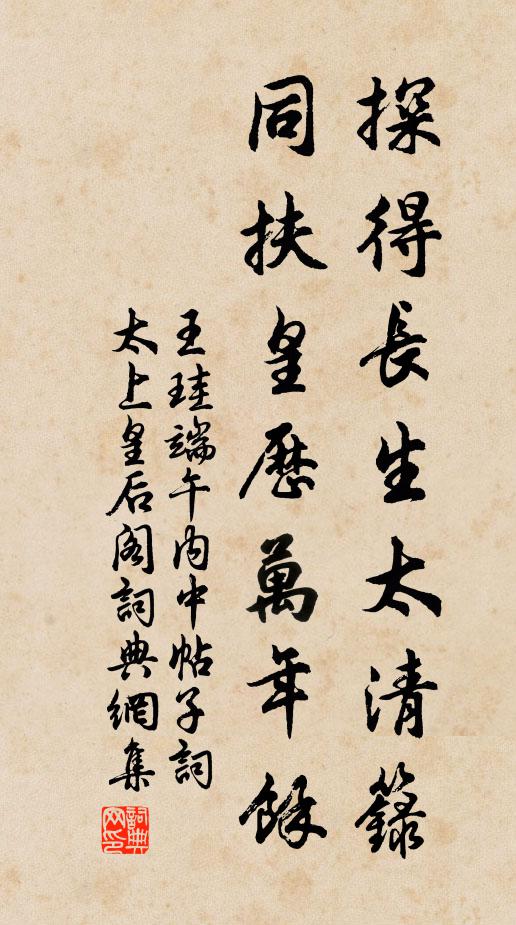 探得長生太清籙
同扶皇歷萬年餘
王珪端午内中帖子詞
太上皇后阁詞典網集
詞典网印